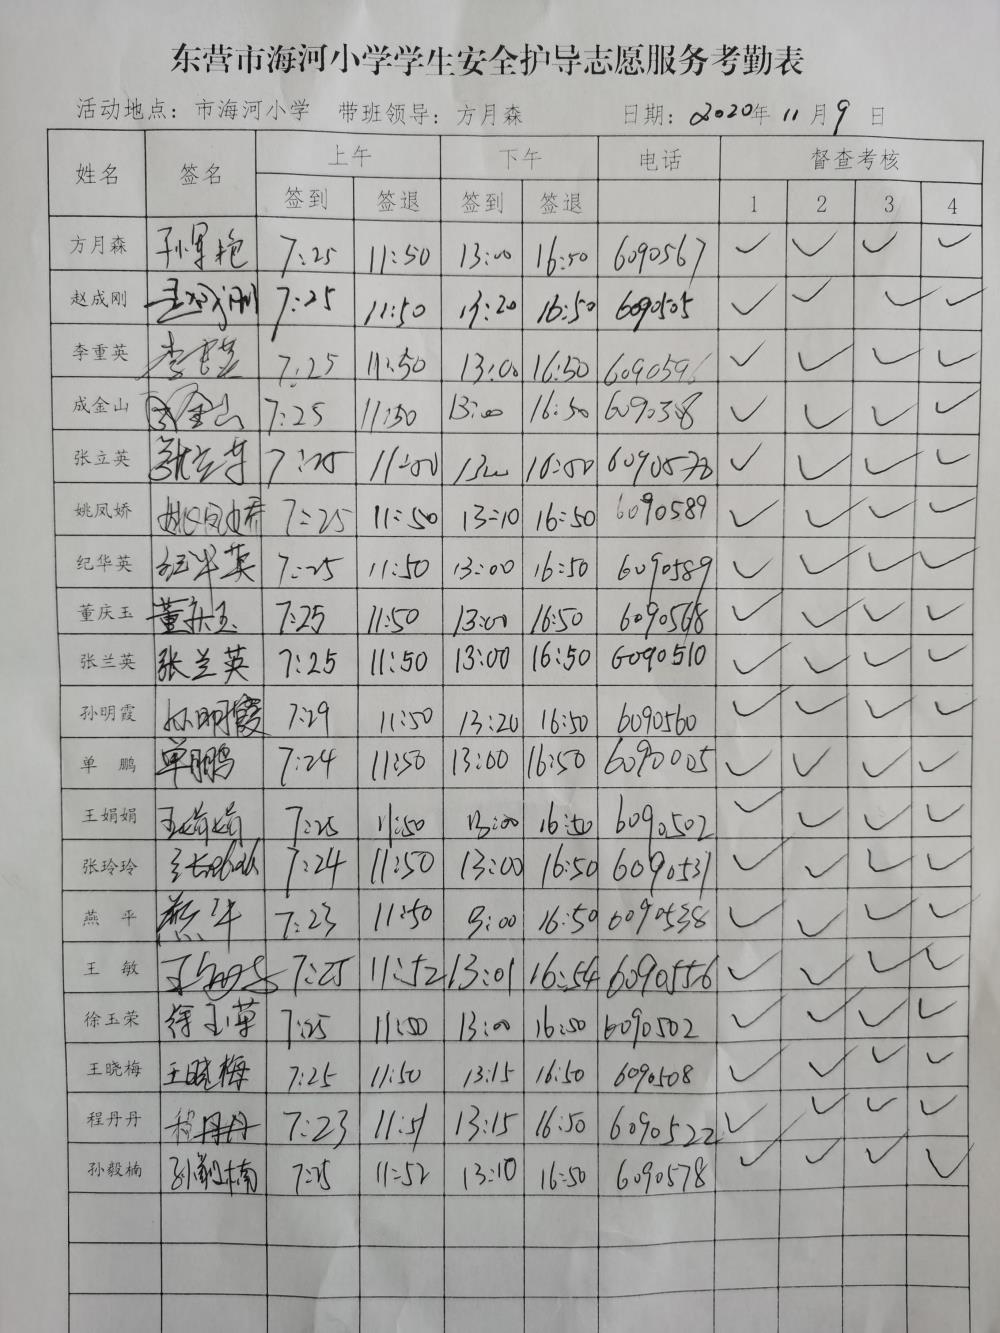 东营市海河小学学生安全护导志愿服务考勤表
活动地点：市海河小学 带班领导：方月森 日期：2020年11月9日
姓名 签名 上午 下午 电话 督查考核
签到 签退 签到 签退 1 2 3 4
方月森 7:25 11:50 13:00 16:50 6090567 ✓ ✓ ✓ ✓
赵成刚 7:25 11:50 13:20 16:50 6090505 ✓ ✓ ✓ ✓
李重英 李重英 7:25 11:50 13:00 16:50 6090596 ✓ ✓ ✓ ✓
成金山 成金山 7:25 11:50 13:00 16:50 ✓ ✓ ✓ ✓
张立英 7:25 11:50 1300 16:50 ✓ ✓ ✓ ✓
姚凤娇 姚凤娇 7:25 11:50 13:10 16:50 6090589 ✓ ✓ ✓ ✓
纪华英 纪华英 7:25 11:50 13:00 16:50 6090589 ✓ ✓ ✓ ✓
董庆玉 董庆玉 7:25 11:50 13:00 16:50 6090568 ✓ ✓ ✓ ✓
张兰英 张兰英 7:25 11:50 13:00 16:50 6090510 ✓ ✓ ✓ ✓
孙明霞 孙明霞 7:29 11:50 13:20 16:50 6090560 ✓ ✓ ✓ ✓
单鹏 单鹏 7:24 11:50 13:00 16:50 6090005 ✓ ✓ ✓ ✓
王娟娟 王娟娟 7:25 11:50 13:00 16:50 6090502 ✓ ✓ ✓ ✓
张玲玲 张玲玲 7:24 11:50 13:00 16:50 6090531 ✓ ✓ ✓ ✓
燕平 燕平 7:23 11:50 3:00 16:50 6090538 ✓ ✓ ✓ ✓
王敏 王敏 7:25 11:52 13:01 16:54 6090556 ✓ ✓ ✓ ✓
徐玉荣 徐玉荣 7:25 11:50 13:00 16:50 6090502 ✓ ✓ ✓ ✓
王晓梅 王晓梅 7:25 11:50 13:15 16:50 6090508 ✓ ✓ ✓ ✓
程丹丹 程丹丹 7:23 11:51 13:15 16:50 6090522 ✓ ✓ ✓ ✓
孙毅楠 孙毅楠 7:25 11:52 13:10 16:50 6090578 ✓ ✓ ✓ ✓